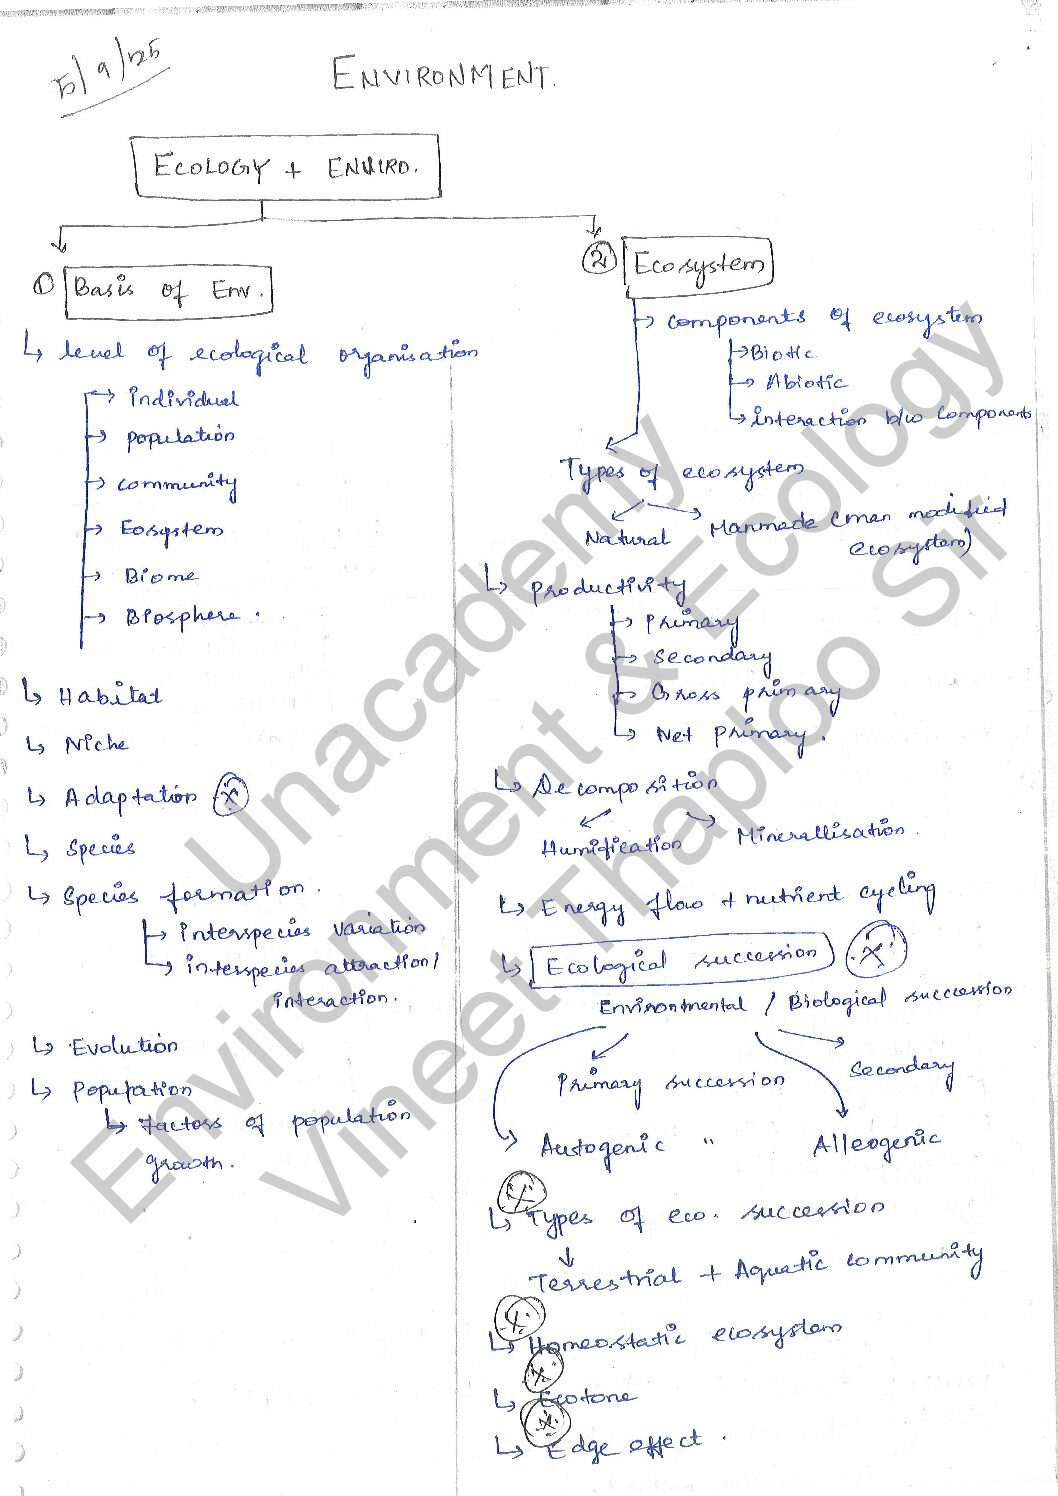 5/9/25
ENVIRONMENT.
ECOLOGY + ENVIRO.
① Basis of Env.
↳ level of ecological organisation
→ individual
→ population
→ community
→ Eosystem
→ Biome
→ Biosphere.
↳ Habitat
↳ Niche
↳ Adaptation
↳ Species
↳ Species formation.
→ interspecies variation
→ interspecies attraction/
interaction.
↳ Evolution
↳ Population
↳ factors of population
growth.
② Ecosystem
→ components of ecosystem
→ Biotic
→ Abiotic
→ interaction b/w components
Types of ecosystem
Natural
Manmade (man modified
ecosystem)
↳ Productivity
→ Primary
→ Secondary
→ Gross primary
→ Net primary.
↳ Decomposition
Humification
Minerallisation.
↳ Energy flow + nutrient cycling
↳ Ecological succession
Environmental / Biological succession
Primary succession
Secondary
Autogenic "
Alleogenic
↳ Types of eco. succession
↓
Terrestrial + Aquatic community
↳ Homeostatic ecosystem
↳ Ecotone
↳ Edge effect.
Unacademy
Environment & Ecology
Vineet Thaploo Sir